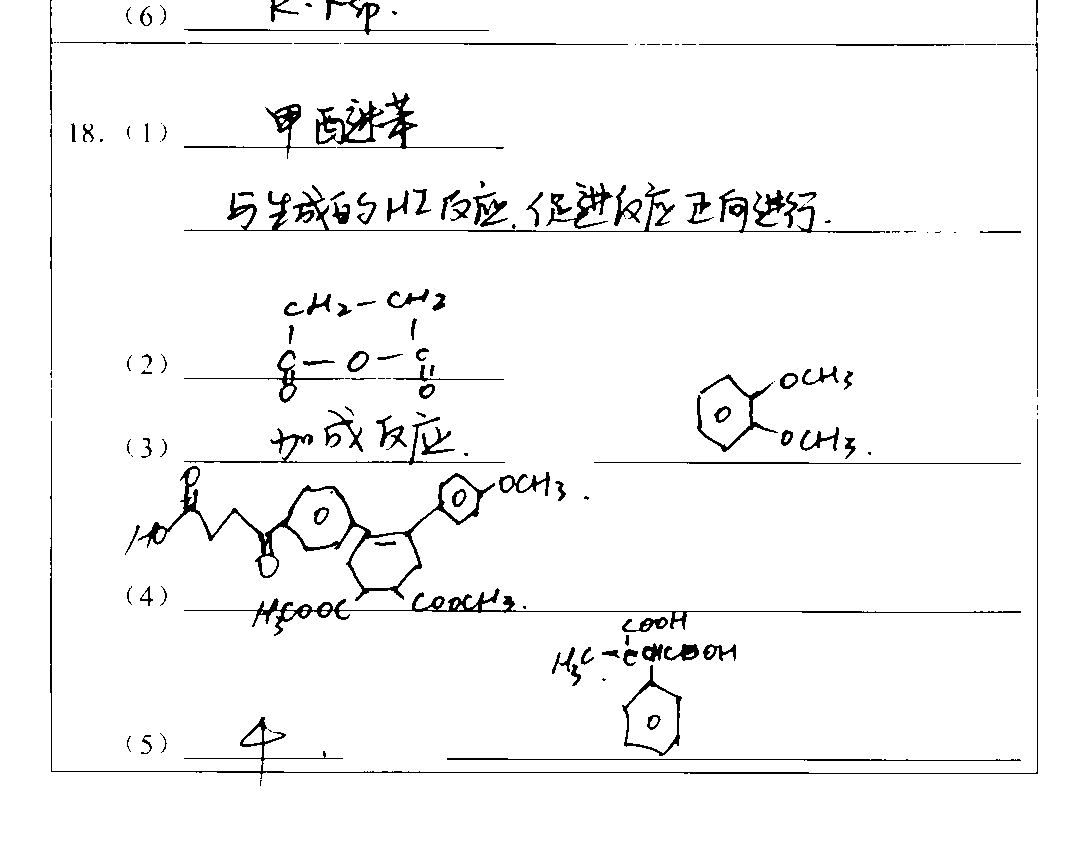 (6) K·Ksp.
18. (1) 甲醚苯
与生成的HI反应,促进反应正向进行.
CH2-CH2
(2) C-O-C
O O
OCH3
OCH3.
(3) 加成反应.
OCH3.
HO O O
(4) H3COOC COOCH3.
COOH
H3C-C
(5) 4.